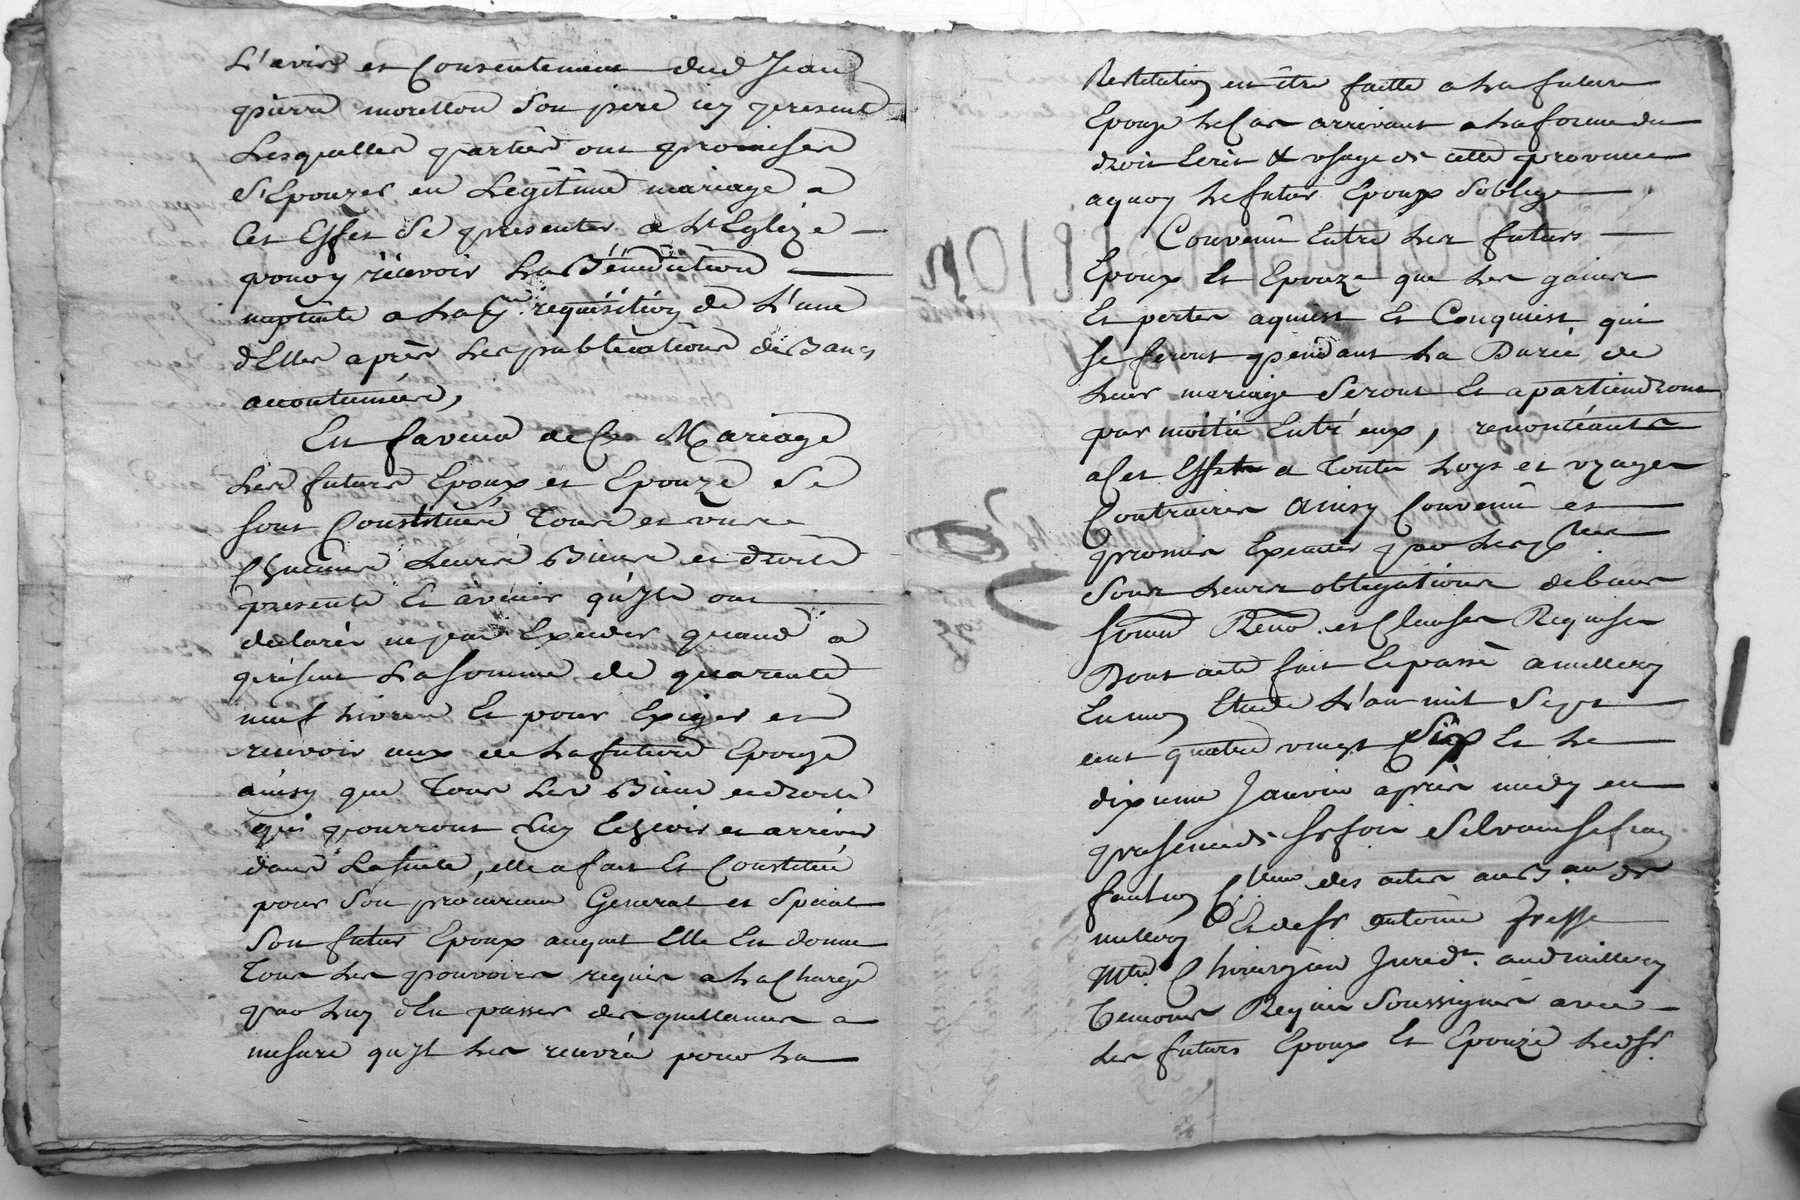 L'avis et Consentement dud Jean
pierre morellon Son pere icy present
Lesquelles parties ont promises
S'Epouzer en Legitime mariage a
Cet Effet Se presenter a Ste Eglize
pour y récevoir La Bénédiction
nuptiale a La pre. réquisition de L'une
d'Elles après Les publications de Bancs
accoutumées,
En faveur de Ce Mariage
Les futurs Epoux et Epouze Se
Sont Constitués Tous et uns
Chacuns Leurs Biens et droits
presents Et avenir qu'ils ont
declarés ne pas Exceder quand a
présent La somme de quarente
neuf Livres Et pour Exiger et
recevoir ceux de La future Epouze
ainsy que Tous Les Biens et droits
qui pourront Luy Echeoir et arriver
dans La suite, elle a fait Et Constitué
pour Son procureur General et Special
Son futur Epoux auquel Elle En donne
Tous Les pouvoirs requis a La Charge
par Luy d'En passer des quittances a
mesure qu'il Les recevra pour La
Restitution en être faitte a La future
Epouze Le Cas arrivant a La forme du
droit Ecrit & usage de cette province
aquoy Le futur Epoux S'oblige
Convenu Entre Les futurs
Epoux Et Epouze que Les gains
Et pertes aquest Et Conquest qui
Se feront pendant La Durée de
Leur mariage Seront Et apartiendront
par moitié Entré eux, renonceants
a Cet Effet a Toutes Loys et uzages
Contraires Ainsy Convenu et
promis Executer par Les ptes
Sous Leurs obligations de biens
Soum Reno. et Clauses Requises
Dont acte fait Et passé a millery
En mon Etude L'an mil Sept
cent quatre vingt Six Et Le
dixieme Janvier après midy en
presences de Sr
des actes au B.au de
millery Et de Sr antoine
Mtre Chirurgien Juré dt. aud millery
Temoins Requis Soussignés avec
Les futurs Epoux Et Epouze Led Sr.